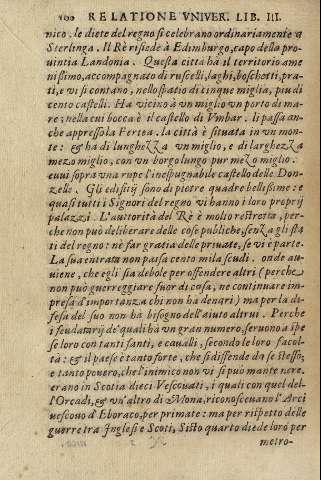 100 RELATIONE VNIVER. LIB. III.
nico. le diete del regno si celebrano ordinariamente a
Sterlinga. Il Rè risiede à Edimburgo, capo della pro-
uintia Landonia. Questa città hà il territorio ame
nissimo, accompagnato di ruscelli, laghi, boschetti, pra-
ti, e vi si contano, nello spatio di cinque miglia, piu di
cento castelli. Ha vicino à vn miglio vn porto di ma-
re: nella cui bocca è il castello di Vmbar. li passa an-
che appresso la Fertea. la città è situata in vn mon-
te: & hà di lunghezza vn miglio, e di larghezza
mezo miglio, con vn borgo lungo pur mezo miglio.
euui sopra vna rupe l'inespugnabile castello delle Don-
zelle. Gli edifitij sono di pietre quadre bellissime: e
quasi tutti i Signori del regno vi hanno i loro proprij
palazzi. L'auttorità del Rè è molto restretta, per-
che non può deliberare delle cose publiche, senza gli sta
ti del regno: nè far gratia delle priuate, se vi è parte.
La sua entrata non passa cento mila scudi. onde au-
uiene, che egli sia debole per offendere altri (perche
non può guerreggiare fuor di casa, ne continuare im-
presa d'importanza chi non ha denari) ma per la di-
fesa del suo non hà bisogno dell'aiuto altrui. Perche
i feudatarij de' quali hà vn gran numero, seruono a spe
se loro con tanti fanti, e caualli, secondo le loro facol-
tà: & il paese è tanto forte, che si difende da se stesso;
e tanto pouero, che l'inimico non vi si può mantenere.
erano in Scotia dieci Vescouati, i quali con quel del-
l'Orcadi, & vn'altro di Mona, riconosceuano l'Arci
uescouo d'Eboraco, per primate: ma per rispetto delle
guerre tra Inglesi e Scoti, Sisto quarto diede loro per
metro-